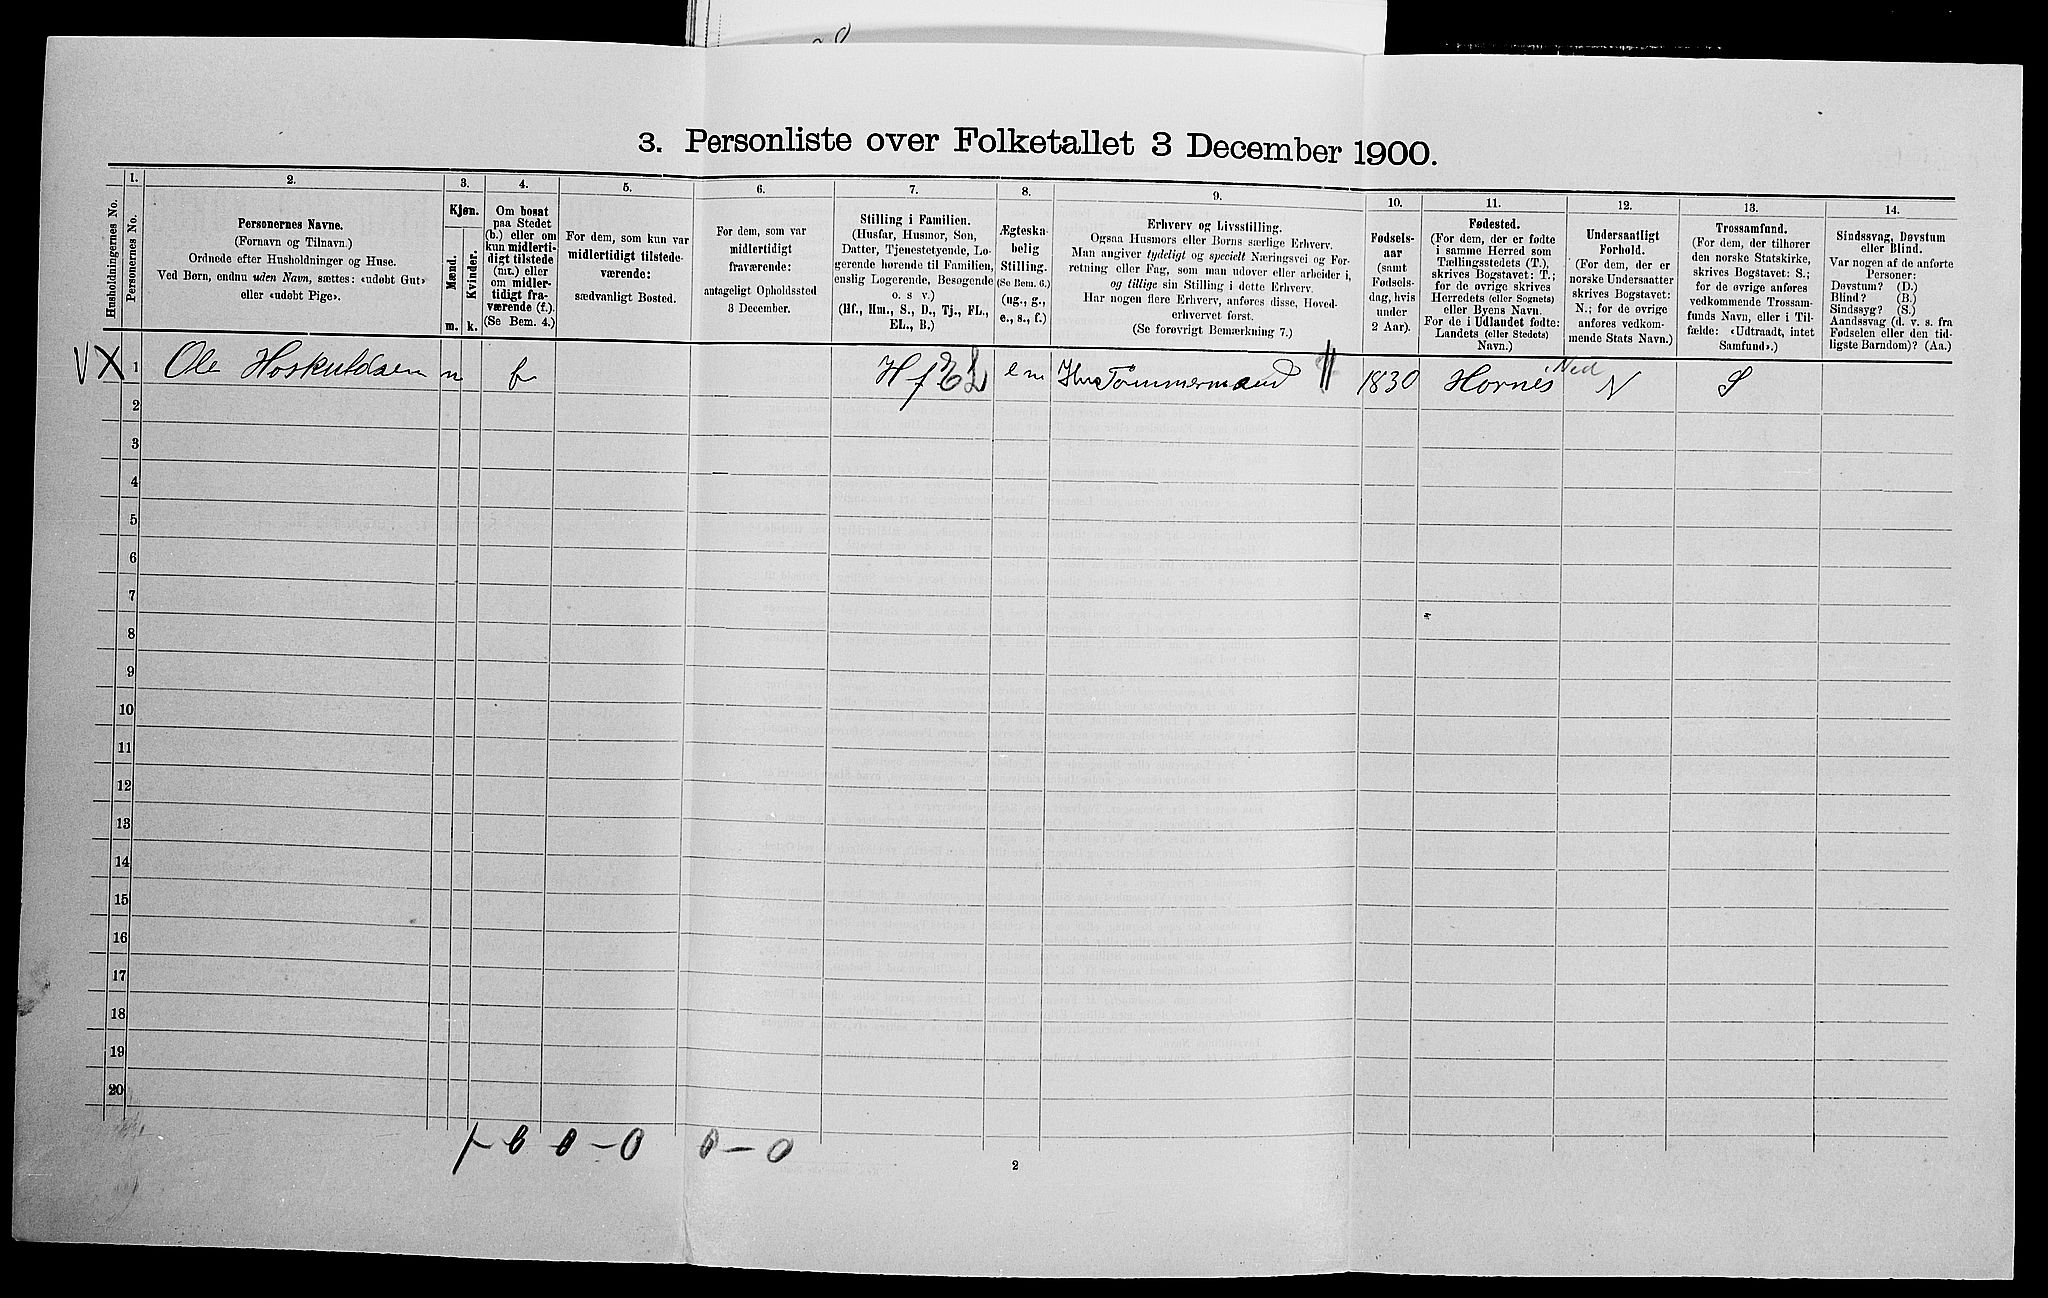 3. Personliste over Folketallet 3 December 1900.
Husholdningernes No.
1.
Personernes No.
2.
Personernes Navne.
(Fornavn og Tilnavn.)
Ordnede efter Husholdninger og Huse.
Ved Børn, endnu uden Navn, sættes: «udøbt Gut»
eller «udøbt Pige».
3.
Kjøn.
Mænd.
Kvinder.
m. k.
4.
Om bosat
paa Stedet
(b.) eller om
kun midlerti-
digt tilstede
(mt.) eller
om midler-
tidigt fra-
værende (f.)
(Se Bem. 4.)
5.
For dem, som kun var
midlertidigt tilstede-
værende:
sædvanligt Bosted.
6.
For dem, som var
midlertidigt
fraværende:
antageligt Opholdssted
3 December.
7.
Stilling i Familien.
(Husfar, Husmor, Søn,
Datter, Tjenestetyende, Lo-
gerende hørende til Familien,
enslig Logerende, Besøgende
o. s. v.)
(Hf., Hm., S., D., Tj., FL.,
EL., B.)
8.
Ægteska-
belig
Stilling.
(Se Bem. 6.)
(ug., g.,
e., s., f.)
9.
Erhverv og Livsstilling.
Ogsaa Husmors eller Børns særlige Erhverv.
Man angiver tydeligt og specielt Næringsvei og For-
retning eller Fag, som man udøver eller arbeider i,
og tillige sin Stilling i dette Erhverv.
Har nogen flere Erhverv, anføres disse, Hoved-
erhvervet først.
(Se forøvrigt Bemærkning 7.)
10.
Fødsels-
aar
(samt
Fødsels-
dag, hvis
under
2 Aar).
11.
Fødested.
(For dem, der er fødte
i samme Herred som
Tællingsstedets (T.),
skrives Bogstavet: T.;
for de øvrige skrives
Herredets (eller Sognets)
eller Byens Navn.
For de i Udlandet fødte:
Landets (eller Stedets)
Navn.)
12.
Undersaatligt
Forhold.
(For dem, der er
norske Undersaatter
skrives Bogstavet:
N.; for de øvrige
anføres vedkom-
mende Stats Navn.)
13.
Trossamfund.
(For dem, der tilhører
den norske Statskirke,
skrives Bogstavet: S.;
for de øvrige anføres
vedkommende Trossam-
funds Navn, eller i Til-
fælde: «Udtraadt, intet
Samfund».)
14.
Sindssvag, Døvstum
eller Blind.
Var nogen af de anførte
Personer:
Døvstum? (D.)
Blind? (B.)
Sindssyg? (S.)
Aandssvag (d. v. s. fra
Fødselen eller den tid-
ligste Barndom)? (Aa.)
V X 1 Ole Hoskuldsen m b Hf EL em Tømmermand 1830 Hornes Ned N S
2
3
4
5
6
7
8
9
10
11
12
13
14
15
16
17
18
19
20
0 - 0 0 - 0
2